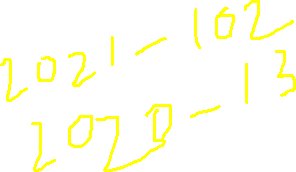 2021-102
2020-13